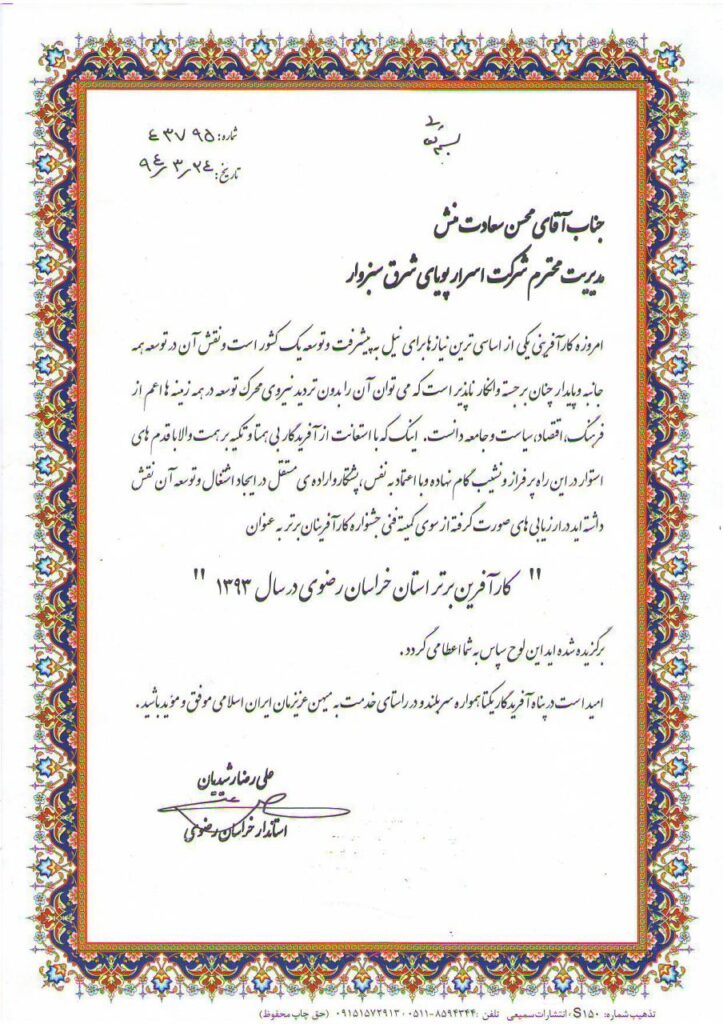 بسمه تعالی
شماره: ۴۳۷۹۵
تاریخ: ۹۴/۳/۲۴
جناب آقای محسن سعادت منش
مدیریت محترم شرکت اسرار پویای شرق سبزوار
امروزه کارآفرینی یکی از اساسی ترین نیازها برای نیل به پیشرفت و توسعه یک کشور است و نقش آن در توسعه همه
جانبه و پایدار چنان برجسته و انکار ناپذیر است که می توان آن را بدون تردید نیروی محرک توسعه در همه زمینه ها اعم از
فرهنگ، اقتصاد، سیاست و جامعه دانست. اینک که با استعانت از آفریدگار بی همتا و تکیه بر همت والا با قدم های
استوار در این راه پر فراز و نشیب گام نهاده و با اعتماد به نفس، پشتکار و اراده ی مستقل در ایجاد اشتغال و توسعه آن نقش
داشته اید در ارزیابی های صورت گرفته از سوی کمیته فنی جشنواره کارآفرینان برتر به عنوان
" کارآفرین برتر استان خراسان رضوی در سال ۱۳۹۳ "
برگزیده شده اید این لوح سپاس به شما اعطا می گردد.
امید است در پناه آفریدگار یکتا همواره سربلند و در راستای خدمت به میهن عزیزمان ایران اسلامی موفق و مؤید باشید.
علی رضا رشیدیان
استاندار خراسان رضوی
تذهیب شماره: S۱۵۰ ، انتشارات سمیعی تلفن: ۸۵۹۴۳۴۴-۰۵۱۱ ، ۰۹۱۵۱۵۷۲۹۱۳ (حق چاپ محفوظ)